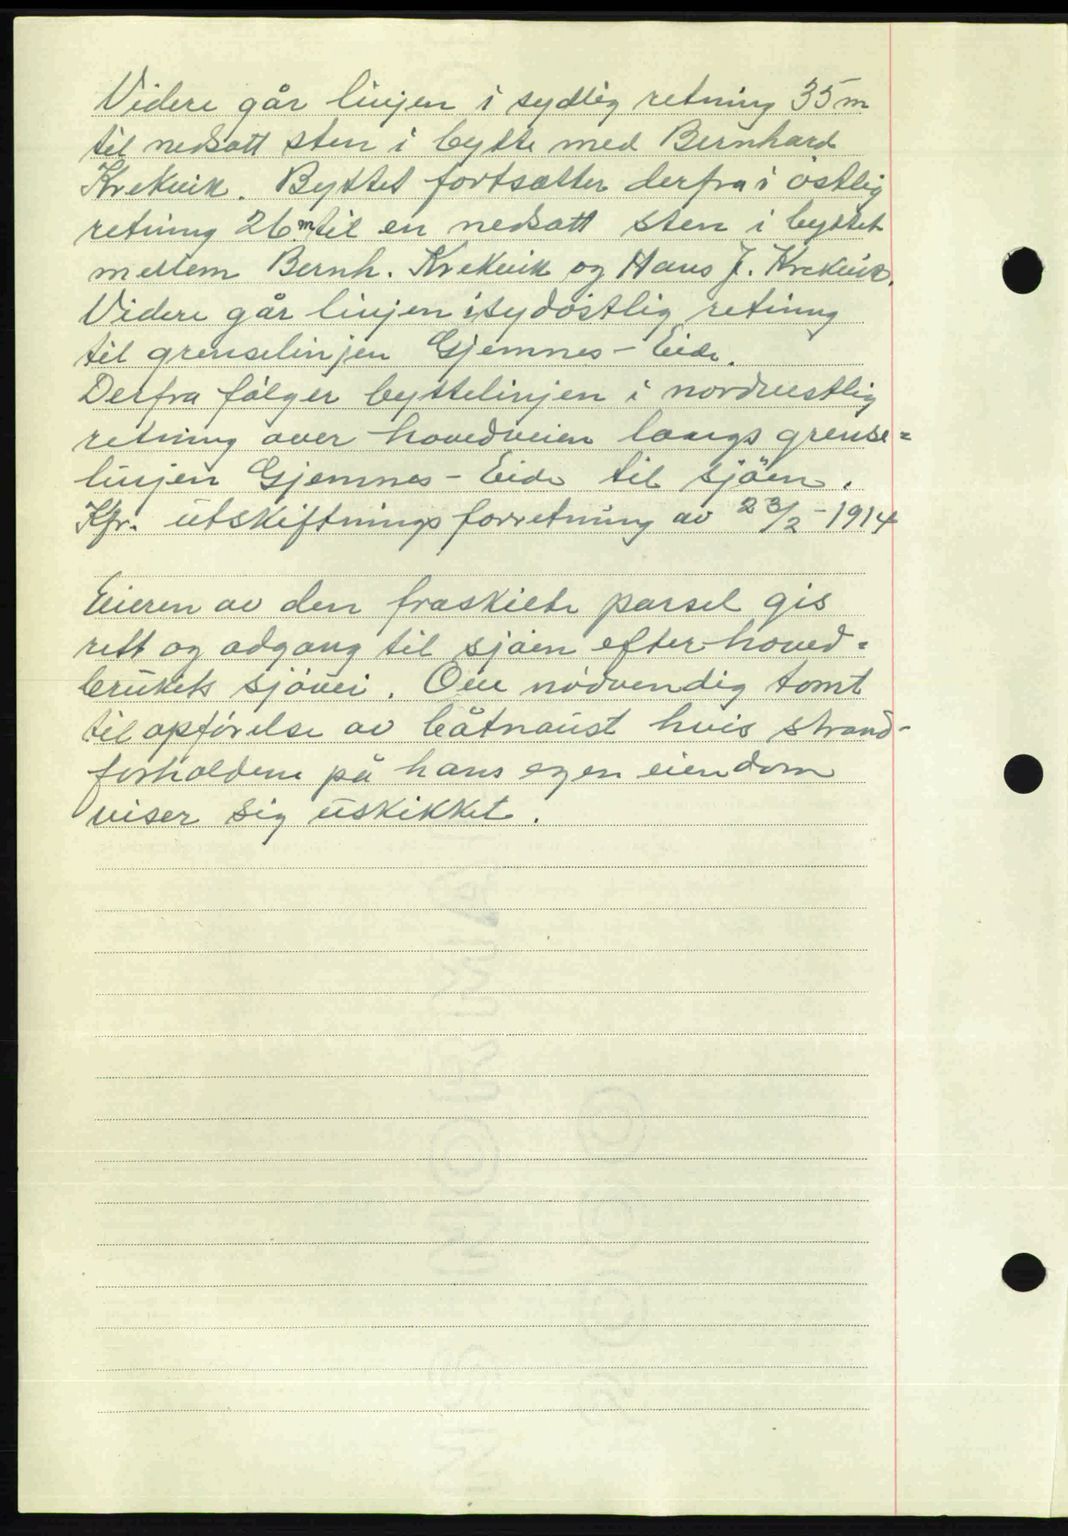 Videre går linjen i sydlig retning 35 m
til nedsatt sten i bytte med Bernhard
Krekvik. Byttet fortsætter derfra i östlig
retning 26 m til en nedsatt sten i byttet
mellem Bernh. Krekvik og Hans J. Krekvik.
Videre går linjen i sydöstlig retning
til grenselinjen Gjemnes - Eide.
Derfra fölger byttelinjen i nordvestlig
retning over hovedveien langs grense=
linjen Gjemnes - Eide til sjöen.
Kfr. utskiftningsforretning av 23/2 - 1914
Eieren av den fraskilte parsel gis
rett og adgang til sjöen efter hoved=
brukets sjövei. Om nödvendig tomt
til opförelse av båtnaust hvis strand-
forholdene på hans egen eiendom
viser sig uskikket.